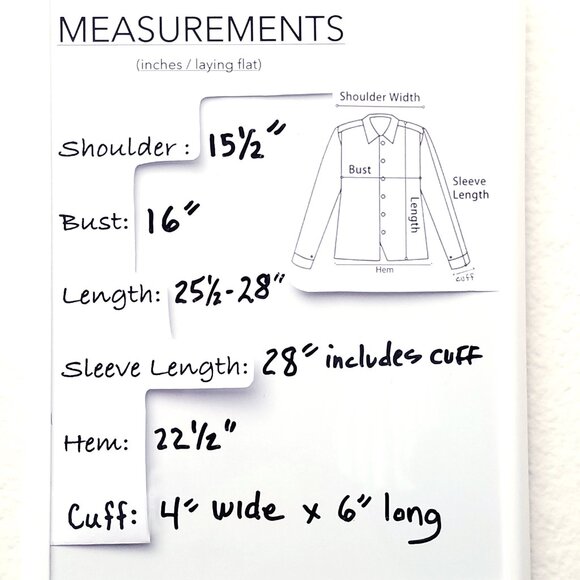 MEASUREMENTS
(inches / laying flat)
Shoulder Width
Shoulder : 15 1/2"
Bust
Sleeve
Length
Bust: 16"
Length
Length: 25 1/2 - 28"
Hem
cuff
Sleeve Length: 28" includes cuff
Hem: 22 1/2"
Cuff: 4" wide x 6" long